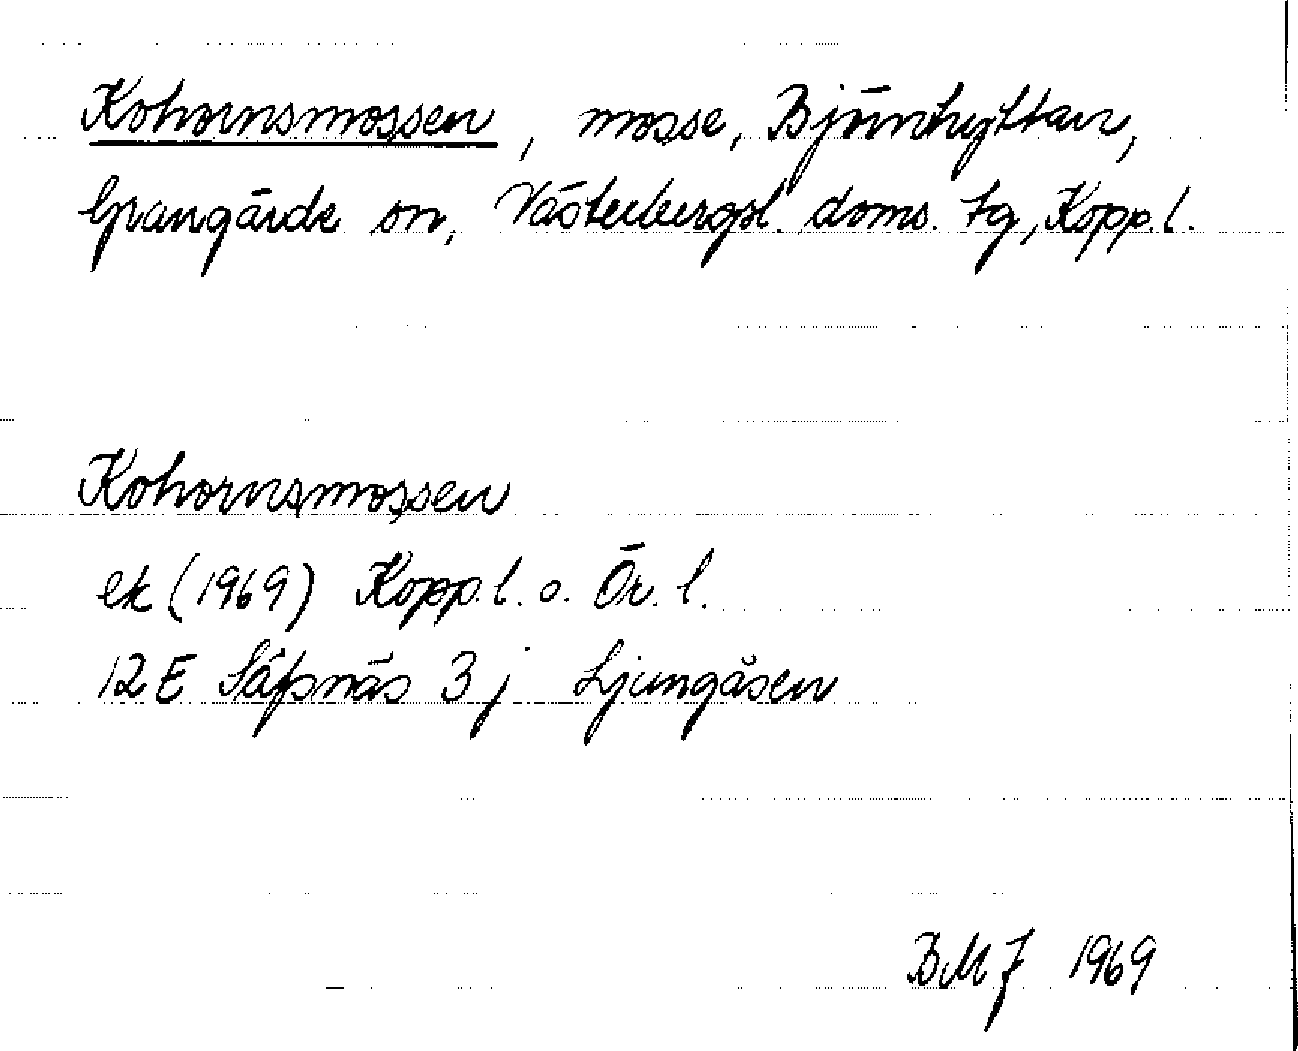 Kohornsmossen, mosse, Björnhyttan,
Grangärde sn, Västerbergsl. doms. tg, Kopp. l.
Kohornsmossen
ek (1969) Kopp. l. o. Ör. l.
12E Säfsnäs 3j Ljungåsen
BMJ 1969